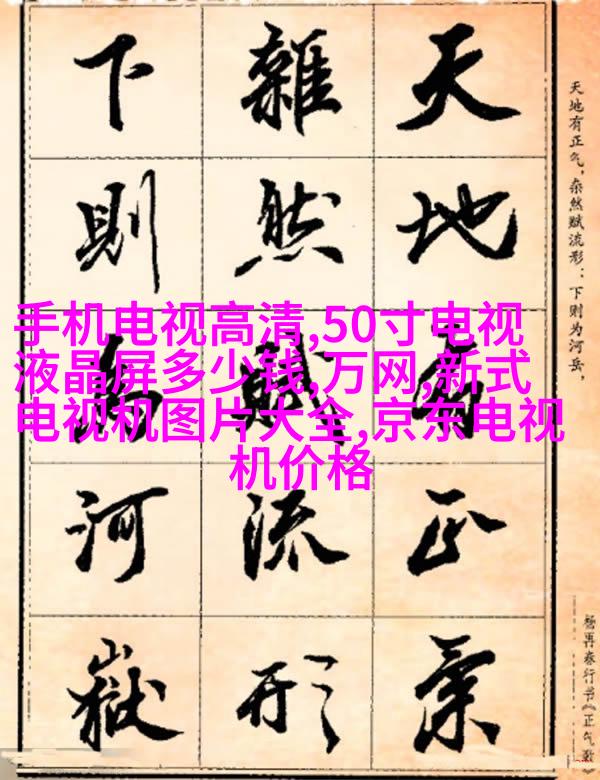 天地有正气，杂然赋流形：下则为河岳，
杨再春行书《正气歌》
天地有正氣
雜然賦流形
下則為河嶽
手机电视高清,50寸电视
液晶屏多少钱,万网,新式
电视机图片大全,京东电视
机价格